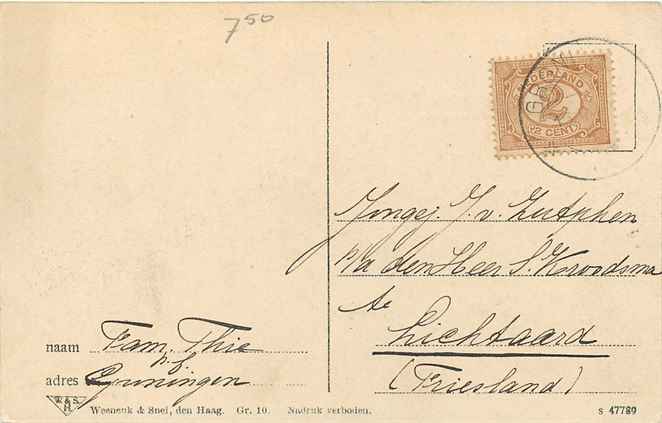 7 50
NEDERLAND
2
2 CENT
GR
Jongej. J. v. Zutphen
p/a den Heer S. Kroodsma
te
Lichtaard
(Friesland)
naam Fam. Thie
adres Gruningen
W & S
H
Weenenk & Snel, den Haag. Gr. 10. Nadruk verboden.
S 47789